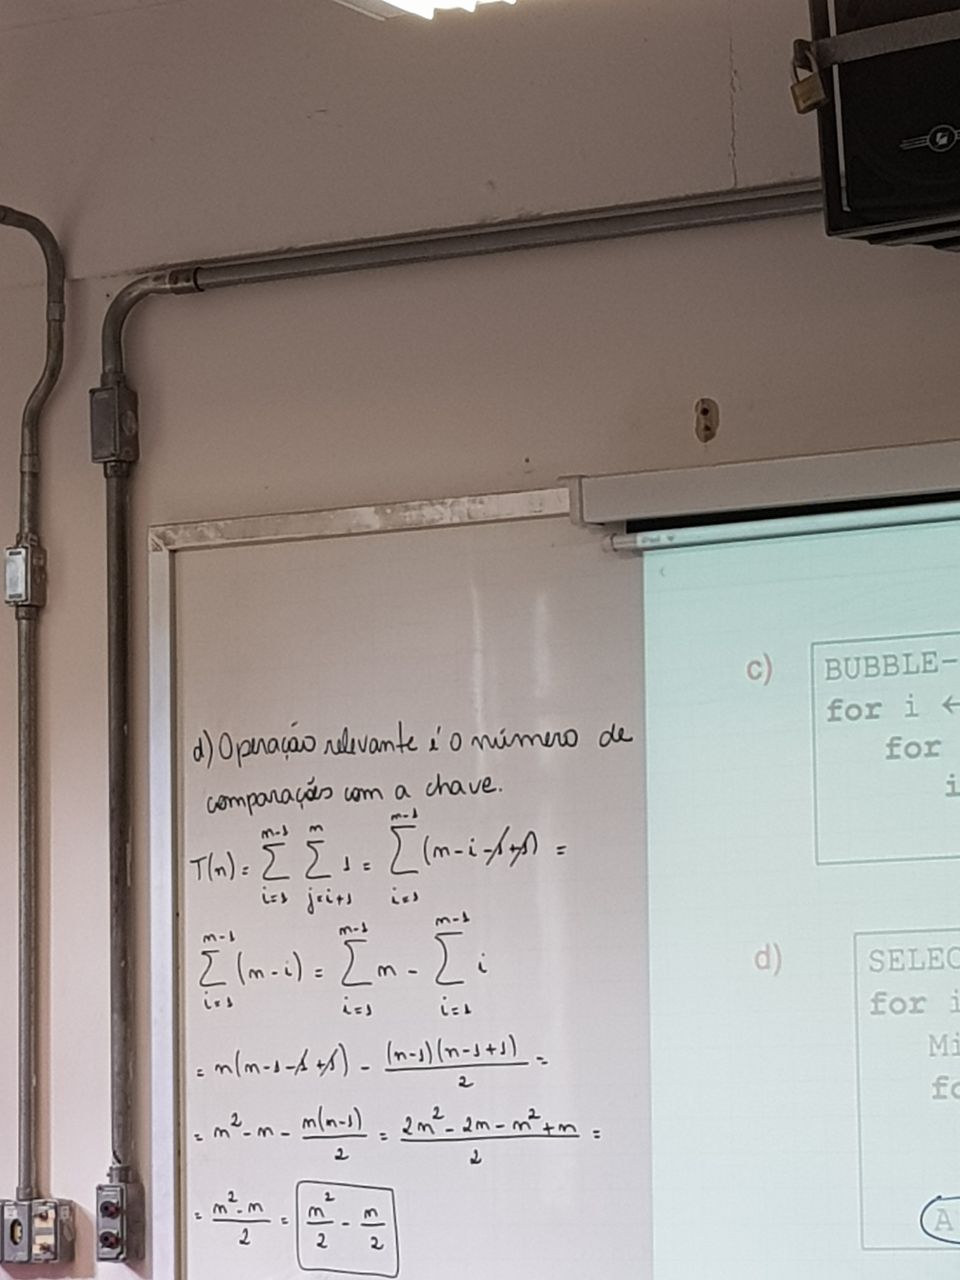 d) Operação relevante é o número de
comparações com a chave.
T(n) = ∑_{i=1}^{n-1} ∑_{j=i+1}^{n} 1 = ∑_{i=1}^{n-1} (n-i-1+1) =
∑_{i=1}^{n-1} (n-i) = ∑_{i=1}^{n-1} n - ∑_{i=1}^{n-1} i
= n(n-1-1+1) - (n-1)(n-1+1)/2 =
= n² - n - n(n-1)/2 = (2n² - 2n - n² + n)/2 =
= (n² - n)/2 = n²/2 - n/2
c)
BUBBLE-
for i ←
for
i
d)
SELEC
for i
Mi
fo
A